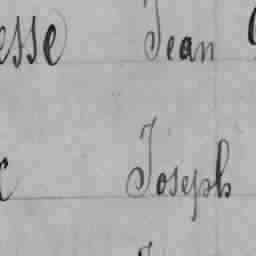 esse Jean
Joseph